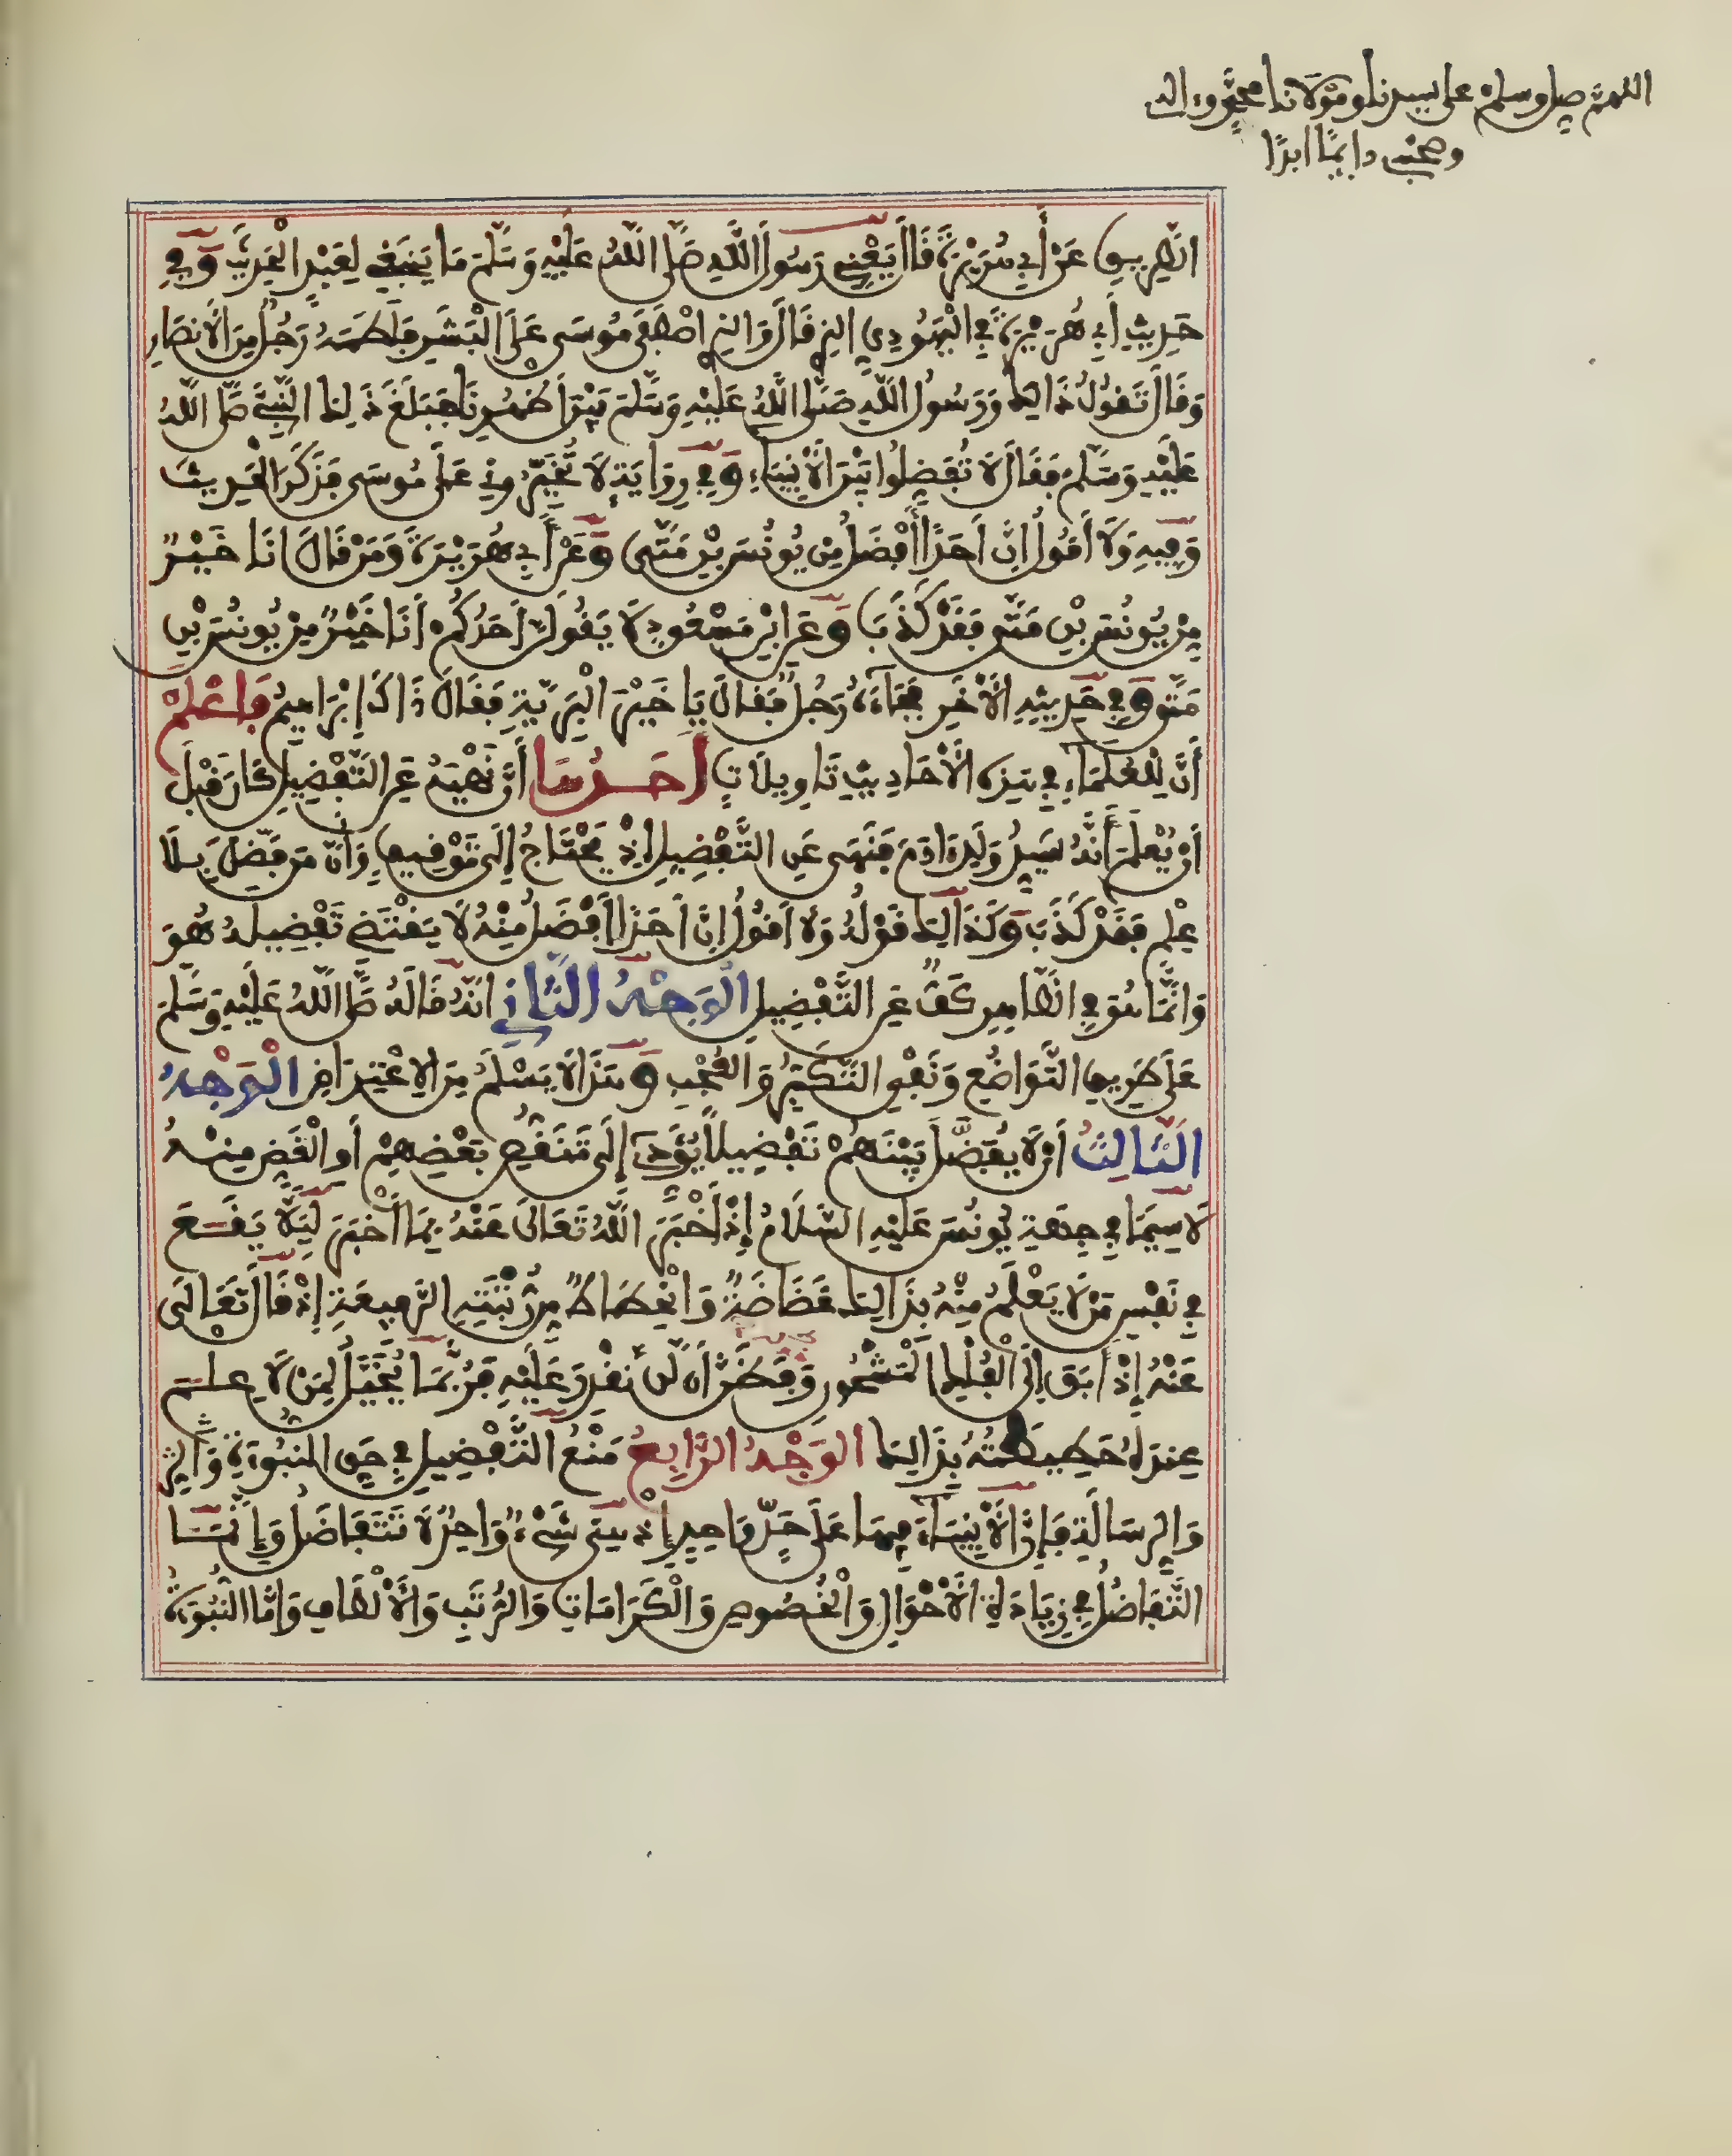 اللهم صل وسلم على سيدنا ومولانا محمد وءاله
وصحبه دايمًا ابدًا
الطريق عَنْ أَبِي هُرَيْرَةَ قَالَ يَعْنِي رَسُولَ اللَّهِ صَلَّى اللَّهُ عَلَيْهِ وَسَلَّمَ مَا يَنْبَغِي لِعَبْدٍ الْحَدِيثَ وَفِي
حَدِيثِ أَبِي هُرَيْرَةَ فِي الْيَهُودِيِّ الذِي قَالَ وَالذِي اصْطَفَى مُوسَى عَلَى الْبَشَرِ فَلَطَمَهُ رَجُلٌ مِنَ الْأَنْصَارِ
وَقَالَ تَقُولُ ذَالِكَ وَرَسُولُ اللَّهِ صَلَّى اللَّهُ عَلَيْهِ وَسَلَّمَ بَيْنَ أَظْهُرِنَا فَبَلَغَ ذَلِكَ النَّبِيَّ صَلَّى اللَّهُ
عَلَيْهِ وَسَلَّمَ فَقَالَ لَا تُفَضِّلُوا بَيْنَ الْأَنْبِيَاءِ وَفِي رِوَايَةٍ لَا تُخَيِّرُونِي عَلَى مُوسَى فَذَكَرَ الْحَدِيثَ
وَفِيهِ وَلَا أَقُولُ إِنَّ أَحَدًا أَفْضَلُ مِنْ يُونُسَ بْنِ مَتَّى وَعَنْ أَبِي هُرَيْرَةَ وَمَنْ قَالَ أَنَا خَيْرٌ
مِنْ يُونُسَ بْنِ مَتَّى فَقَدْ كَذَبَ وَعَنِ ابْنِ مَسْعُودٍ لَا يَقُولَنَّ أَحَدُكُمْ أَنَا خَيْرٌ مِنْ يُونُسَ بْنِ
مَتَّى وَفِي حَدِيثِهِ الْأَخَرِ فَجَاءَهُ رَجُلٌ فَقَالَ يَا خَيْرَ الْبَرِيَّةِ فَقَالَ ذَاكَ إِبْرَاهِيمُ فَاعْلَمْ
أَنَّ لِلْعُلَمَاءِ فِي هَذِهِ الْأَحَادِيثِ تَاوِيلَاتٍ أَحَدُهَا أَنَّ نَهْيَهُ عَنِ التَّفْضِيلِ كَانَ قَبْلَ
أَنْ يُعْلَمَ أَنَّهُ سَيِّدُ وَلَدِ ءَادَمَ فَنَهَى عَنِ التَّفْضِيلِ إِذْ يَحْتَاجُ إِلَى تَوْقِيفٍ وَأَنَّ مَنْ فَضَّلَ بِلَا
عِلْمٍ فَقَدْ كَذَبَ وَكَذَالِكَ قَوْلُهُ وَلَا أَقُولُ إِنَّ أَحَدًا أَفْضَلُ مِنْهُ لَا يَقْتَضِي تَفْضِيلَهُ هُوَ
وَإِنَّمَا هُوَ فِي الظَّاهِرِ كَفٌّ عَنِ التَّفْضِيلِ الْوَجْهُ الثَّانِي أَنَّهُ قَالَهُ صَلَّى اللَّهُ عَلَيْهِ وَسَلَّمَ
عَلَى طَرِيقِ التَّوَاضُعِ وَنَفْيِ التَّكَبُّرِ وَالْعُجْبِ وَهَذَا لَا يَسْلَمُ مِنَ الِاعْتِرَاضِ الْوَجْهُ
الثَّالِثُ أَنْ لَا يُفَضَّلَ بَيْنَهُمْ تَفْضِيلًا يُؤَدِّي إِلَى تَنَقُّصِ بَعْضِهِمْ أَوِ الْغَضِّ مِنْهُ
لَا سِيَّمَا فِي جِهَةِ يُونُسَ عَلَيْهِ السَّلَامُ إِذْ أَخْبَرَ اللَّهُ تَعَالَى عَنْهُ بِمَا أَخْبَرَ لِيَلَّا يَقَعَ
فِي نَفْسِ مَنْ لَا يَعْلَمُ مِنْهُ بِذَالِكَ غَضَاضَةٌ وَانْحِطَاطٌ مِنْ رُتْبَتِهِ الرَّفِيعَةِ إِذْ قَالَ تَعَالَى
عَنْهُ إِذْ أَبَقَ إِلَى الْفُلْكِ الْمَشْحُونِ وَفَظَنَّ أَن لَّن نَّقْدِرَ عَلَيْهِ فَرُبَّمَا يُخَيَّلُ لِمَنْ لَا عِلْمَ
عِنْدَهُ حَطِيطَتُهُ بِذَالِكَ الْوَجْهُ الرَّابِعُ مَنْعُ التَّفْضِيلِ فِي حَقِّ النُّبُوءَةِ
وَالرِّسَالَةِ فَإِنَّ الْأَنْبِيَاءَ فِيهَا عَلَى حَدٍّ وَاحِدٍ إِذْ هِيَ شَيْءٌ وَاحِدٌ لَا تَتَفَاضَلُ وَإِنَّمَا
التَّفَاضُلُ فِي زِيَادَةِ الْأَحْوَالِ وَالْخُصُوصِ وَالْكَرَامَاتِ وَالرُّتَبِ وَالْأَلْطَافِ وَأَمَّا النُّبُوَّةُ